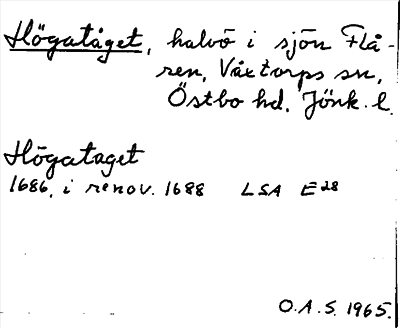 Högatåget, halvö i sjön Flå-
ren, Våxtorps sn,
Östbo hd. Jönk. l.
Högataget
1686, i renov. 1688 LSA E28
O.A.S. 1965.